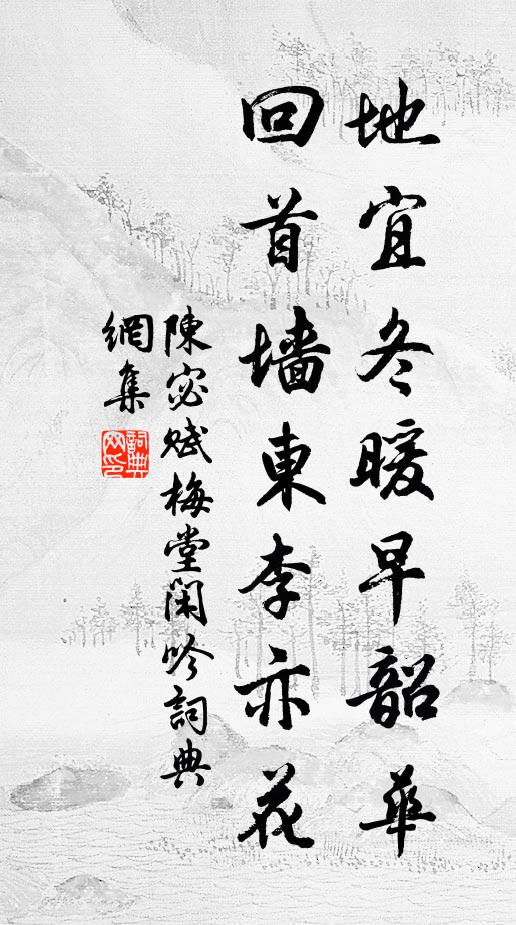 地宜冬暖早韶華
回首墙東李亦花
陳宓賦梅堂閑吟詞典
網集
詞典
网印